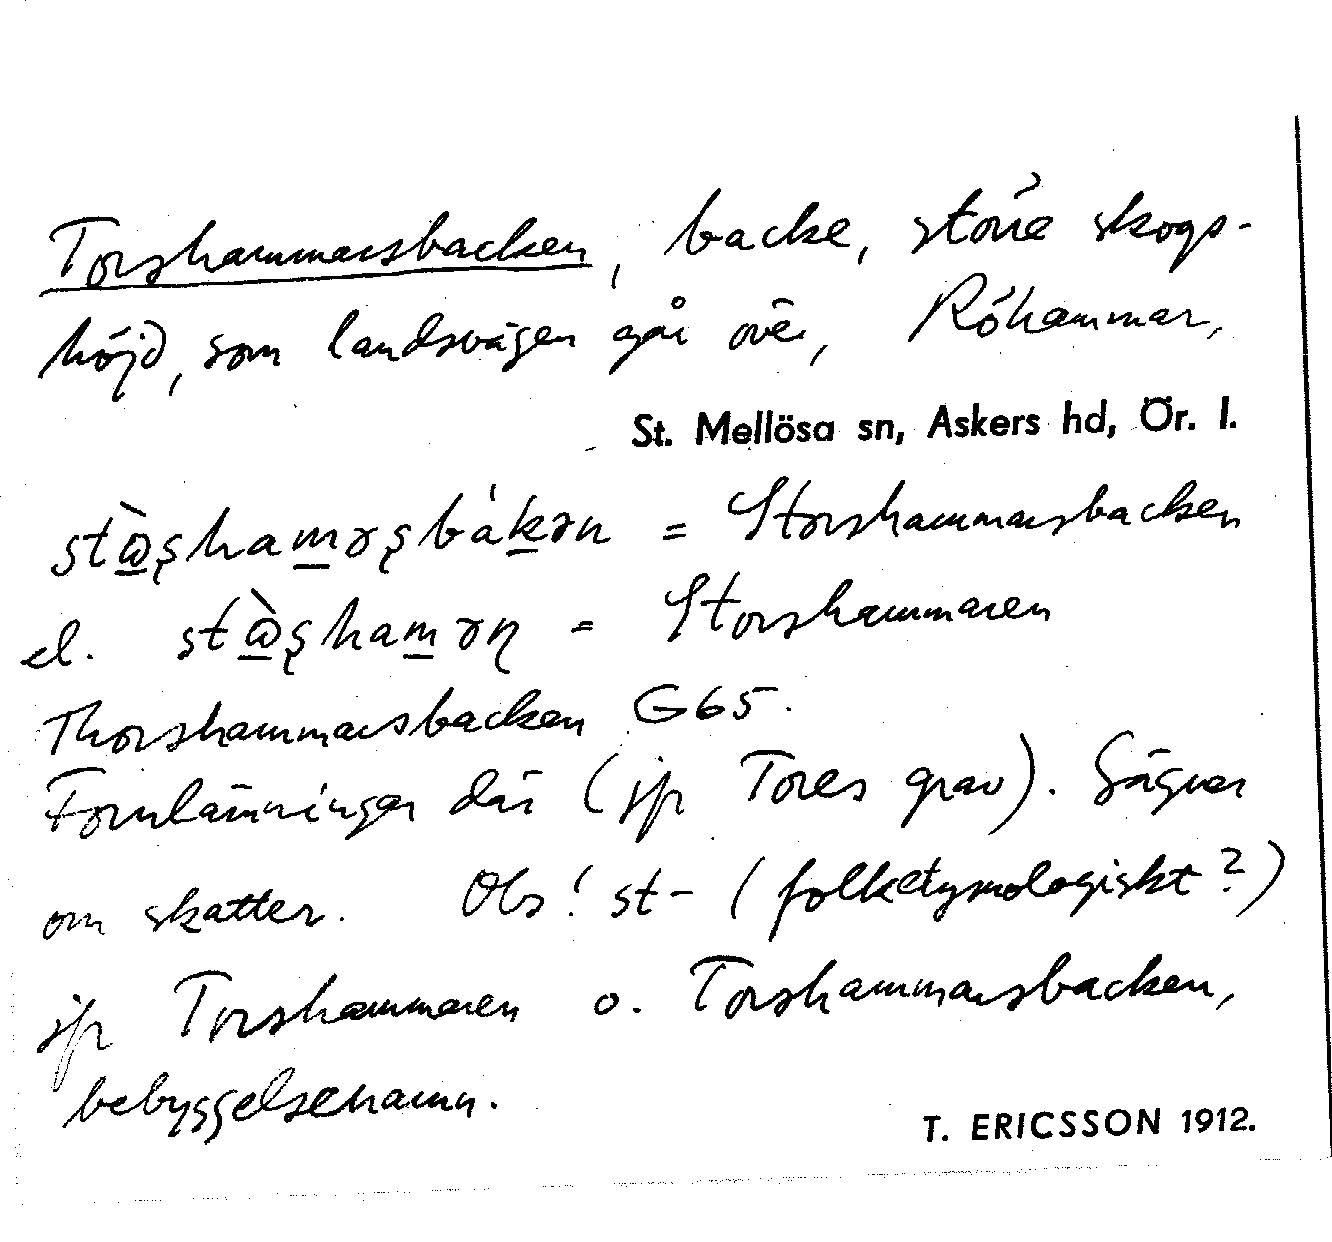 Torshammarsbacken, backe, större skogs-
höjd, som landsvägen går över, Röhammar,
St. Mellösa sn, Askers hd, Ör. l.
= Storshammarsbacken
el. = Storshammaren
Thorshammarsbacken G65.
Fornlämningar där (jfr Tores grav). Sägner
om skatter. Obs! st- (folketymologiskt?)
jfr Torshammaren o. Torshammarsbacken,
bebyggelsenamn.
T. ERICSSON 1912.